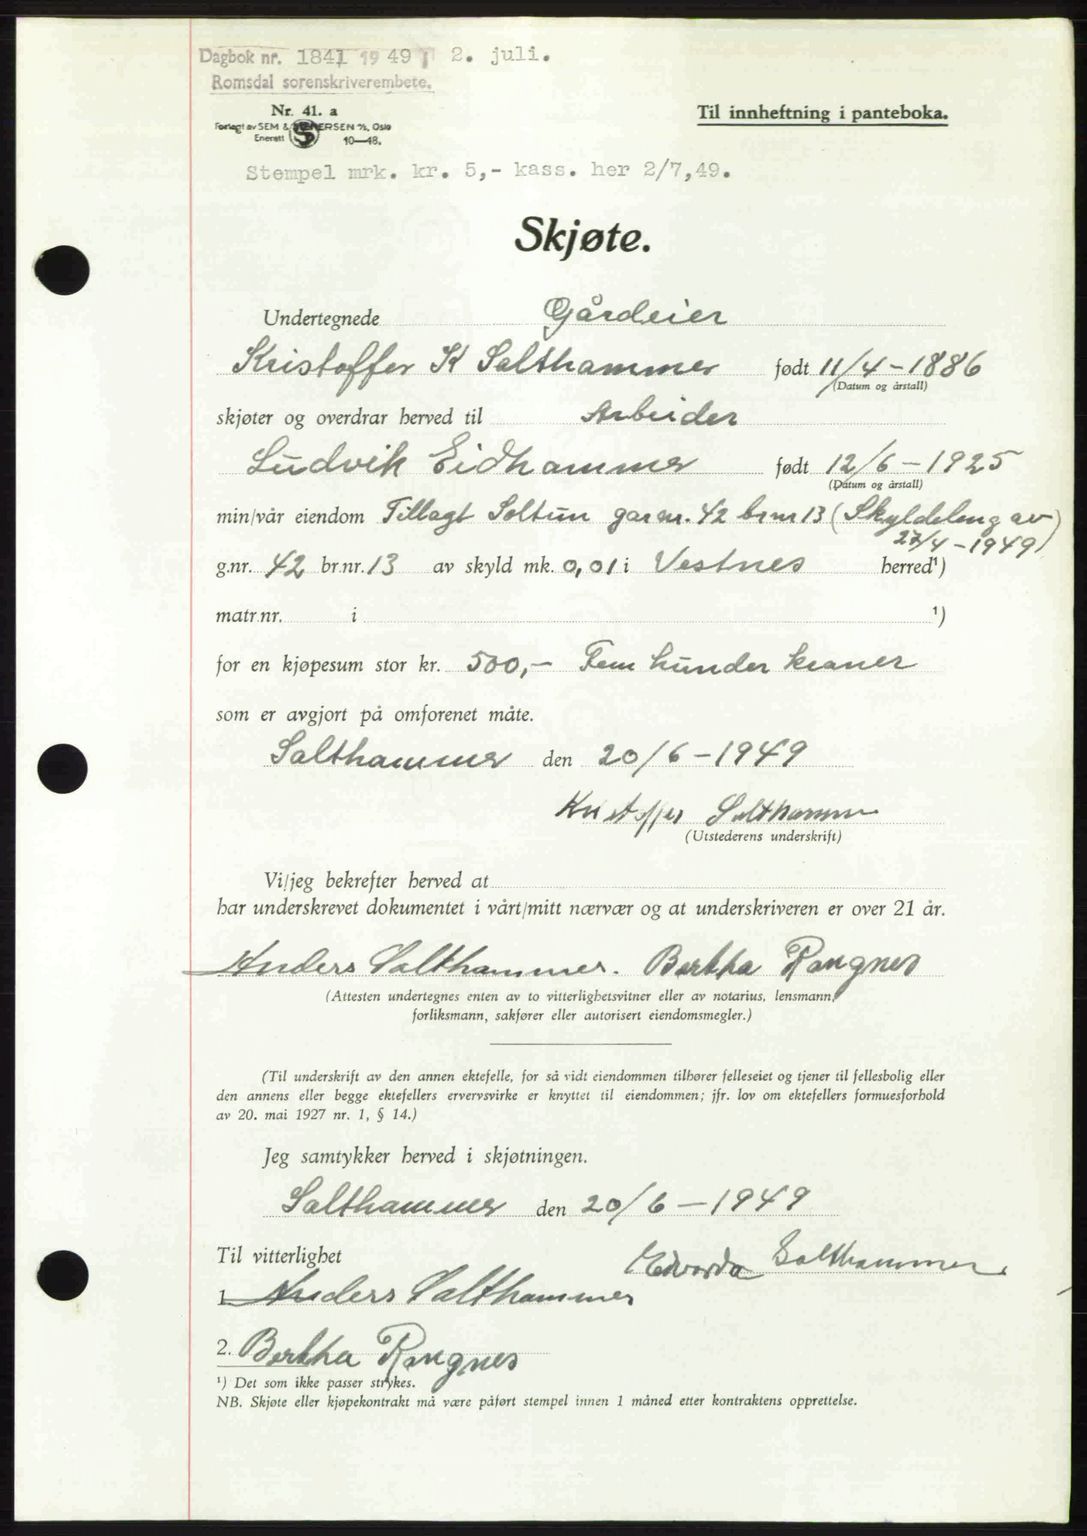 Dagbok nr. 1841 1949 2. juli.
Romsdal sorenskriverembete.
Nr. 41. a
Til innheftning i panteboka.
Forlagt av SEM & STENERSEN A/S, Oslo
Enerett 10—48.
Stempel mrk. kr. 5,- kass. her 2/7,49.
Skjøte.
Undertegnede Gårdeier
Kristoffer K Salthammer født 11/4 - 1886
(Datum og årstall)
skjøter og overdrar herved til Arbeider
Ludvik Eidhammer født 12/6 - 1925
(Datum og årstall)
min/vår eiendom Tillagt Soltun garnr. 42 brnr 13 (Skyldeling av
27/4 - 1949)
g.nr. 42 br.nr. 13 av skyld mk. 0,01 i Vestnes herred¹)
matr.nr. i ¹)
for en kjøpesum stor kr. 500,- Fem hunder kroner
som er avgjort på omforenet måte.
Salthammer den 20/6 - 1949
Kristoffer Salthammer
(Utstederens underskrift)
Vi/jeg bekrefter herved at
har underskrevet dokumentet i vårt/mitt nærvær og at underskriveren er over 21 år.
Anders Salthammer. Bertha Rangnes
(Attesten undertegnes enten av to vitterlighetsvitner eller av notarius, lensmann,
forliksmann, sakfører eller autorisert eiendomsmegler.)
(Til underskrift av den annen ektefelle, for så vidt eiendommen tilhører felleseiet og tjener til fellesbolig eller
den annens eller begge ektefellers ervervsvirke er knyttet til eiendommen; jfr. lov om ektefellers formuesforhold
av 20. mai 1927 nr. 1, § 14.)
Jeg samtykker herved i skjøtningen.
Salthammer den 20/6 - 1949
Til vitterlighet Edvarda Salthammer
1. Anders Salthammer
2. Bertha Rangnes
¹) Det som ikke passer strykes.
NB. Skjøte eller kjøpekontrakt må være påført stempel innen 1 måned etter kontraktens opprettelse.